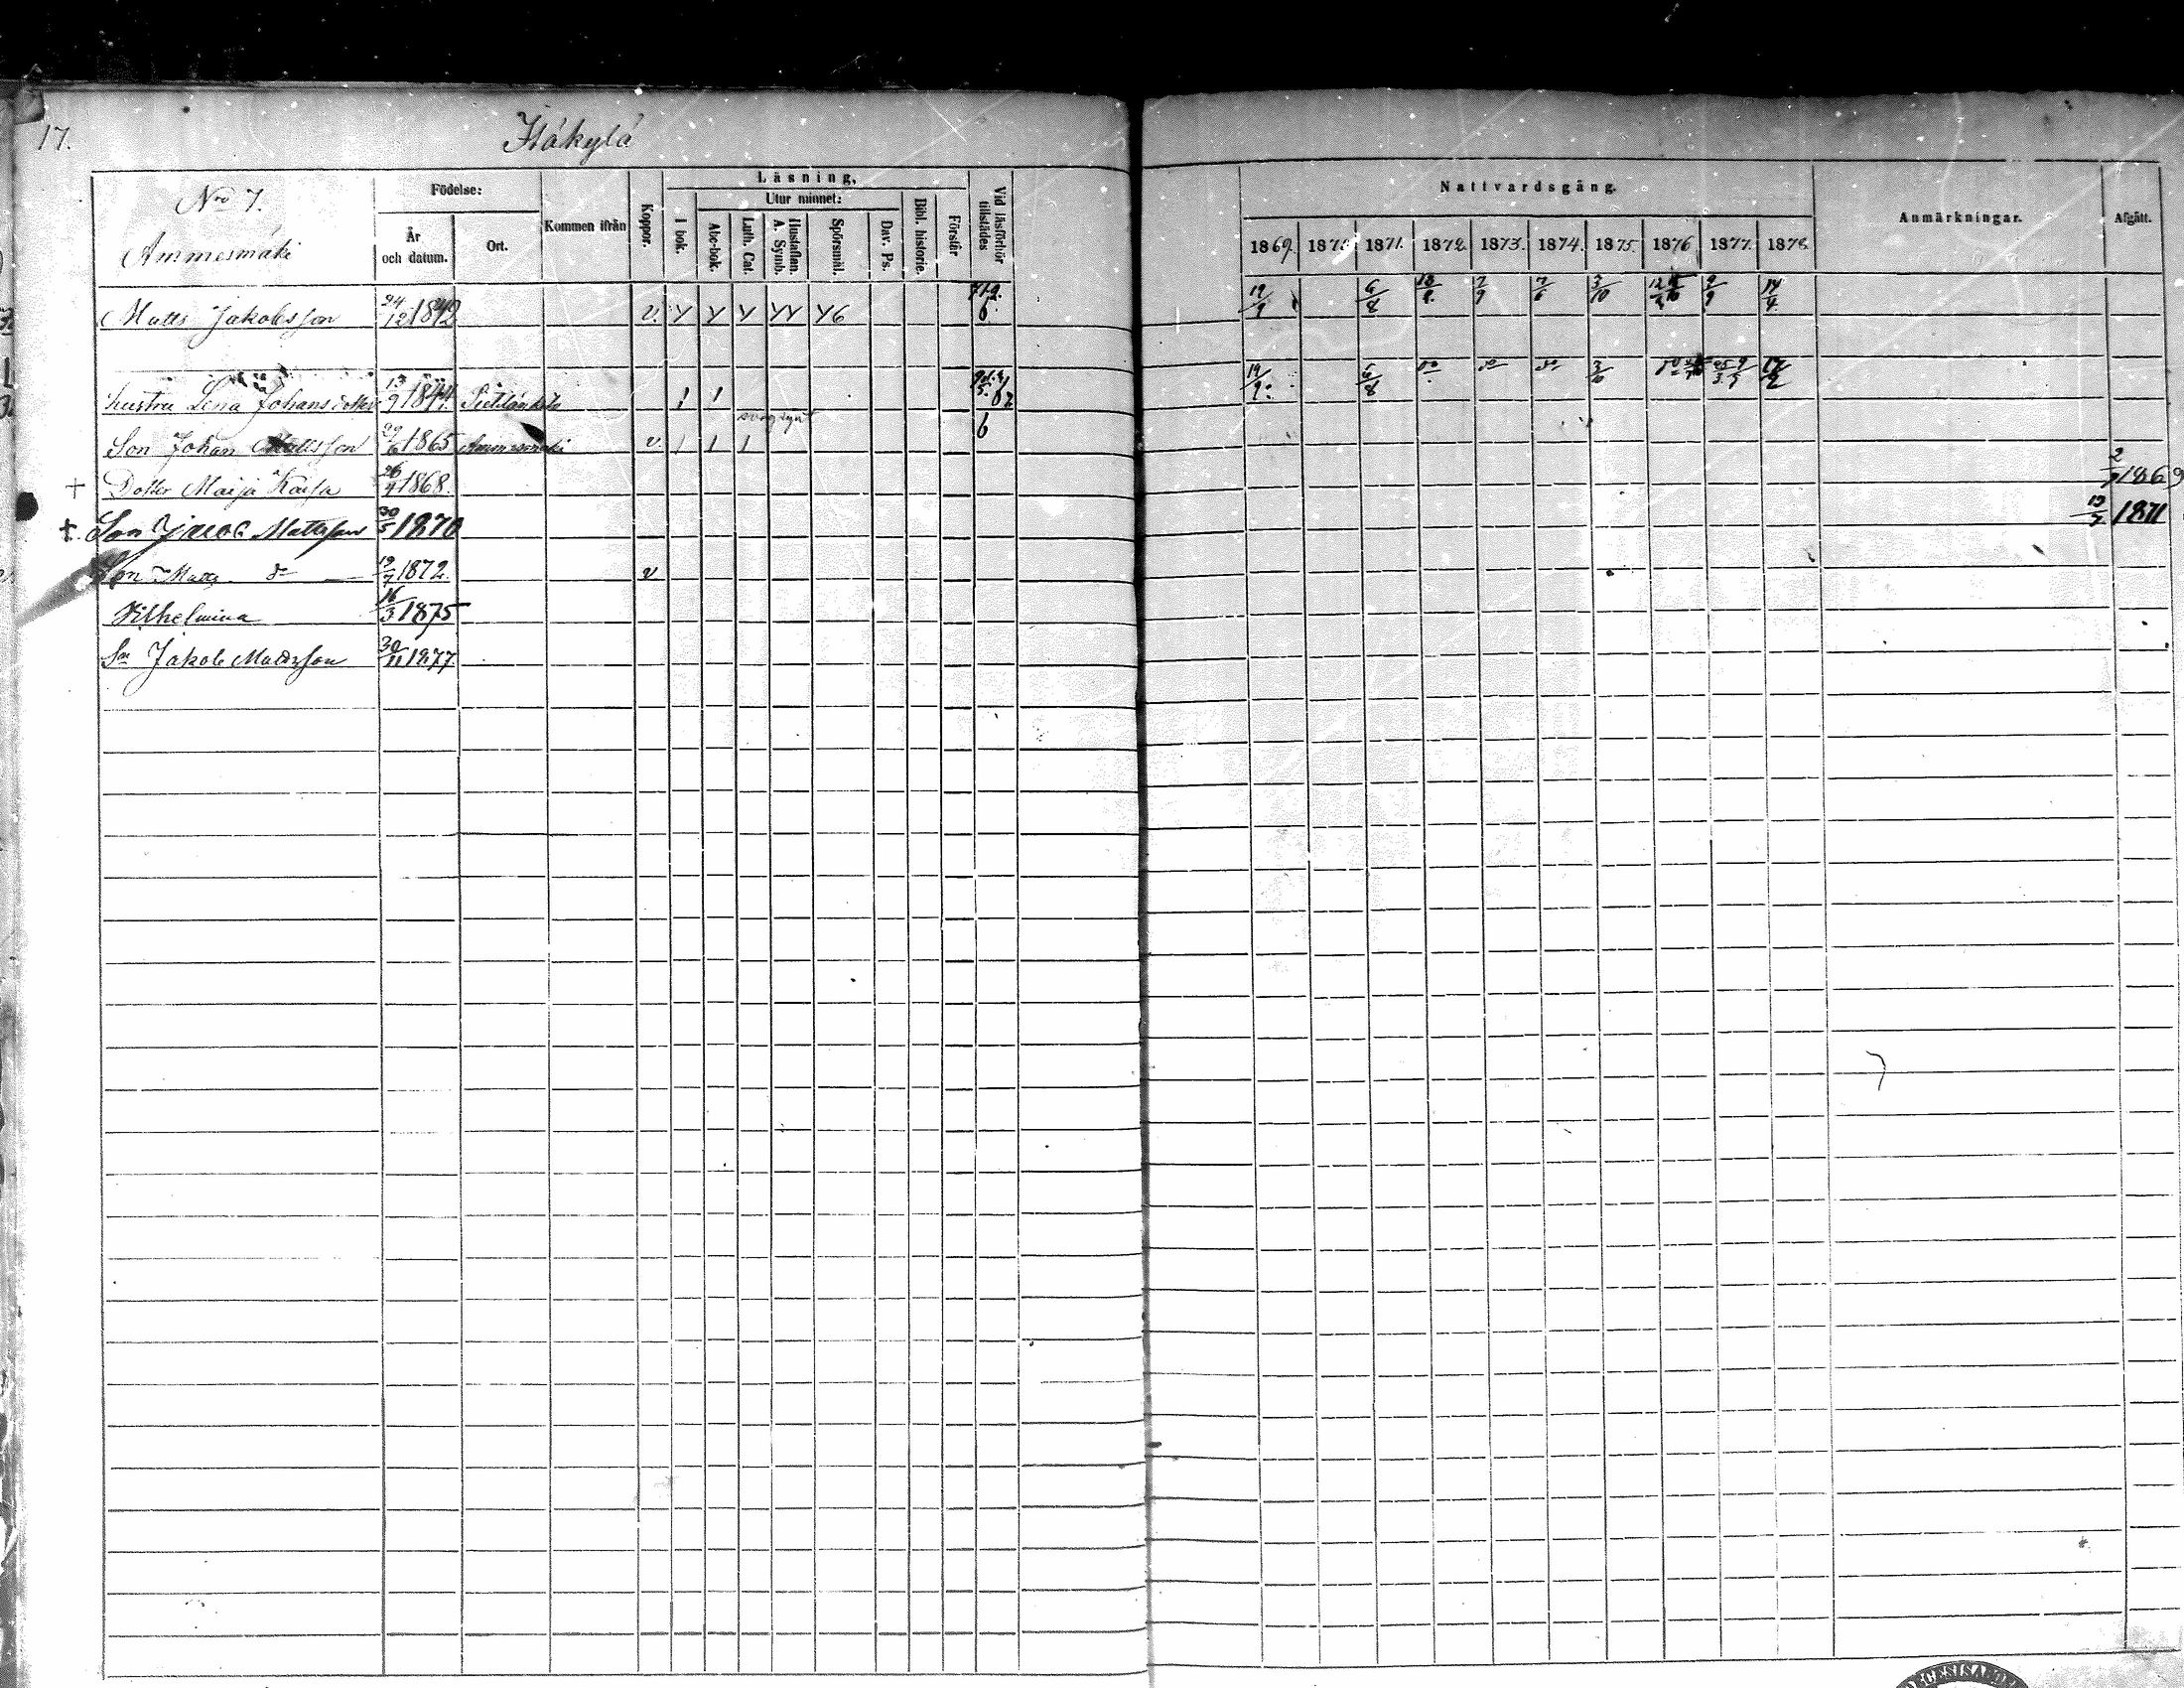 17.
Itäkylä
Nro 7.
Ammesmäki
Födelse:
År och datum.
Ort.
Kommen ifrån
Koppor.
Läsning,
I bok.
Utur minnet:
Abc-bok.
Luth. Cat.
Hustaflan. A. Symb.
Spörsmål.
Dav. Ps.
Bibl. historie.
Förstår
Vid läsförhör tillstädes
Nattvardsgång.
1869. 1870. 1871. 1872. 1873. 1874. 1875. 1876. 1877. 1878.
Anmärkningar.
Afgått.
Matts Jakobsson 24/12 1842 v. Y Y Y YY Y6 6. 19/9 6/8 18/8. 7/9 7/6 3/10 9/9 14/4
hustru Lena Johansdotter 13/9 1844 1 1 19/9. 6/8 do do do 3/10 do
Son Johan Mattsson 29/6 1865 Ammesmäki v. 1 1 1 6
+ Dotter Maija Kaisa 26/4 1868. 2/7 1869
+ Son Jacob Mattsson 30/5 1870 13/7 1871
Son Matts do 19/7 1872. v
Vilhelmina 16/3 1875
Sn Jakob Matsson 30/11 1877.